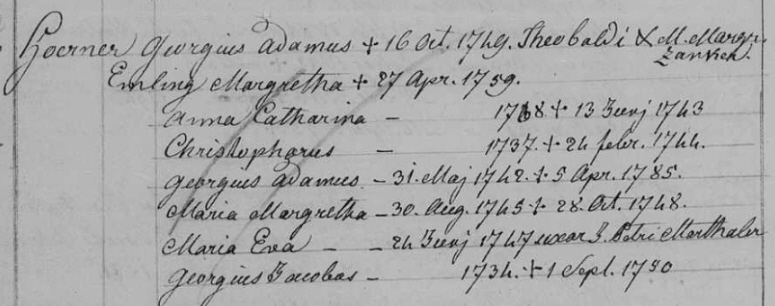 Hoerner Georgius Adamus + 16 Oct. 1749. Theobaldi & M. Margr. Zanken.
Emling Margretha + 27 Apr. 1759.
Anna Catharina – + 13 Junj 1743
Christophorus – 1737. + 24 febr. 1744.
Georgius Adamus – 31. Maj 1742. + 5 Apr. 1785.
Maria Margretha – 30. Aug. 1745 + 28. Oct. 1748.
Maria Eva – – 24 Junj 1747 uxor J. Petri Marthaler
Georgius Jacobus – 1734. + 1 Sept. 1750